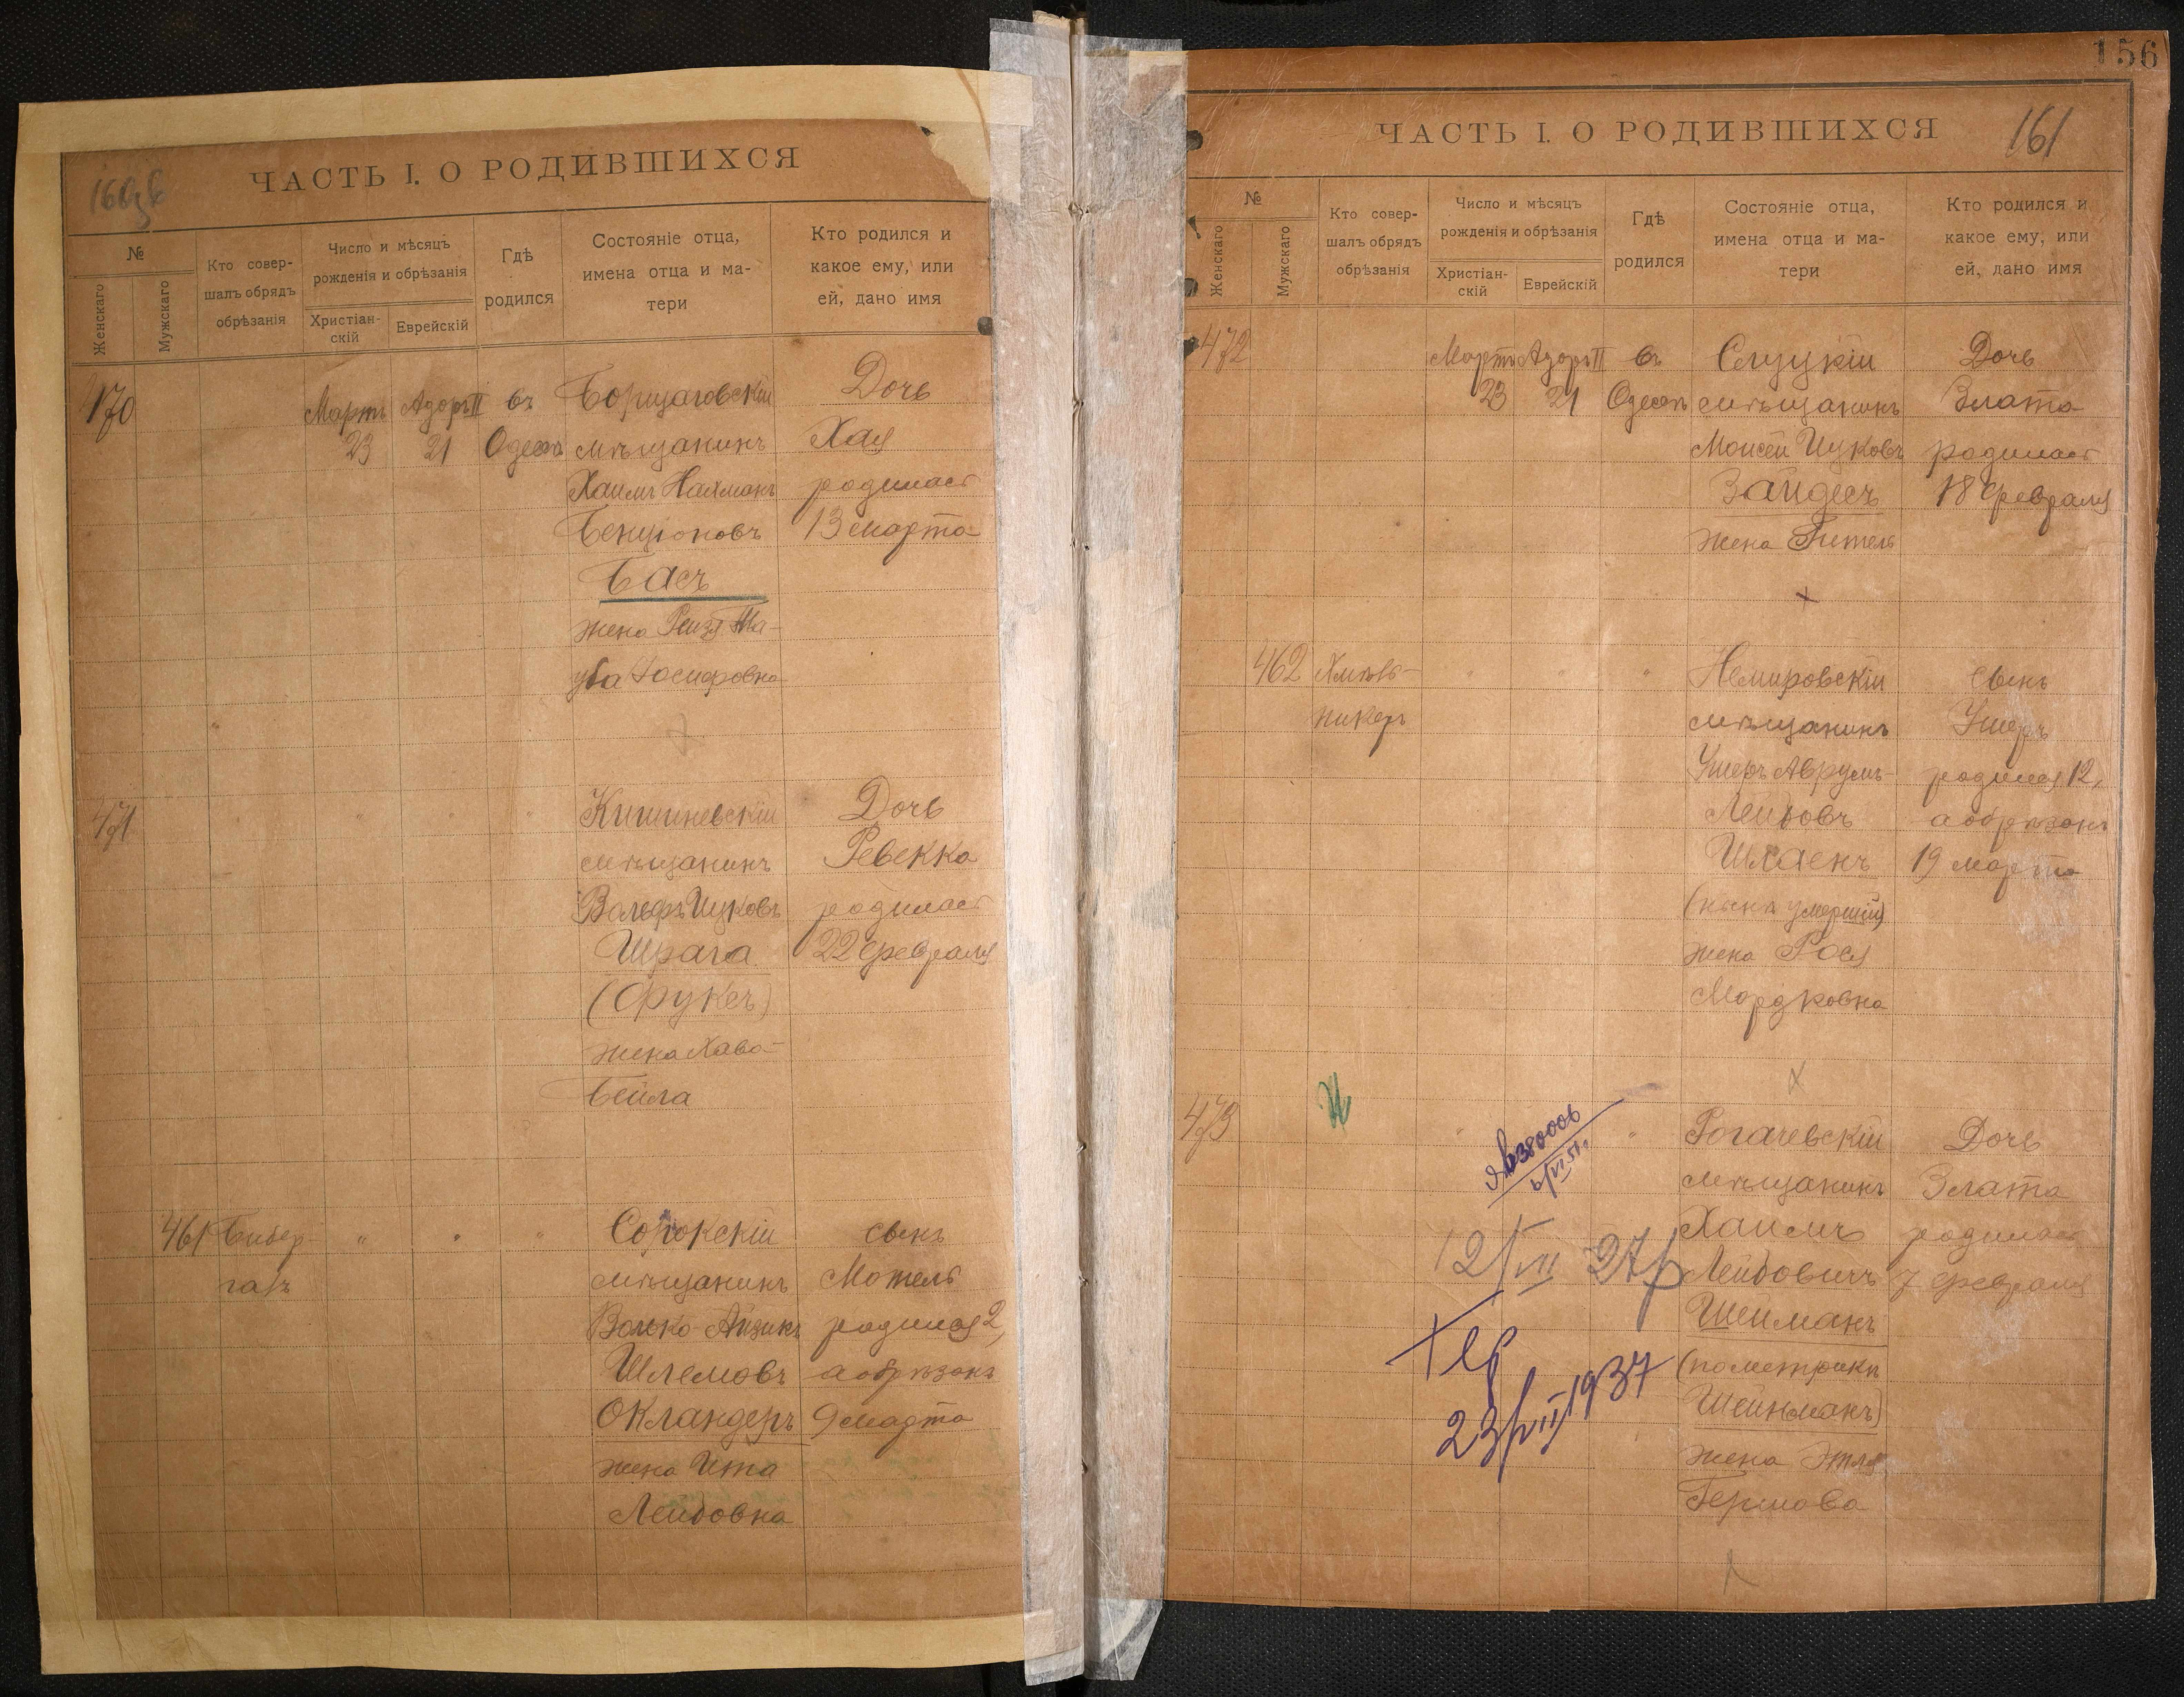 ЧАСТЬ I. О РОДИВШИХСЯ
№
Женскаго
Мужскаго
Кто совер-
шалъ обрядъ
обрѣзанія
Число и мѣсяцъ
рожденія и обрѣзанія
Христіан-
скій
Еврейскій
Гдѣ
родился
Состояніе отца,
имена отца и ма-
тери
Кто родился и
какое ему, или
ей, дано имя
470
Мартъ
23
Адоръ II
21
въ
Одессѣ
Борщаговскій
мѣщанинъ
Хаимъ Нахманъ
Бенціоновъ
Басъ
жена Рейзя Та-
уба Іосифовна
Дочь
Хая
родилась
13 марта
471
Кишиневскій
мѣщанинъ
Вольфъ Ицковъ
Шрага
(Фрукъ)
жена Хава-
Бейла
Дочь
Ревекка
родилась
22 февраля
461
Бибер-
галъ
Сорокскій
мѣщанинъ
Волько-Айзикъ
Шлемовъ
Окландеръ
жена Ита
Лейбовна
сынъ
Мотель
родился 2,
а обрѣзанъ
9 марта
156
161
ЧАСТЬ I. О РОДИВШИХСЯ
№
Женскаго
Мужскаго
Кто совер-
шалъ обрядъ
обрѣзанія
Число и мѣсяцъ
рожденія и обрѣзанія
Христіан-
скій
Еврейскій
Гдѣ
родился
Состояніе отца,
имена отца и ма-
тери
Кто родился и
какое ему, или
ей, дано имя
472
Мартъ
23
Адоръ II
21
въ
Одессѣ
Слуцкій
мѣщанинъ
Моисей Ицковъ
Зайдесъ
жена Гитель
Дочь
Злата
родилась
18 февраля
462
Хмѣль-
никеръ
Немировскій
мѣщанинъ
Ушеръ Аврумъ-
Лейбовъ
Шлаенъ
(нынѣ умершій)
жена Рося
Мордковна
сынъ
Ушеръ
родился 12,
а обрѣзанъ
19 марта
473
Рогачевскій
мѣщанинъ
Хаимъ
Лейбовичъ
Шейманъ
(по метрикѣ
Шейнманъ)
жена Этля
Гершова
Дочь
Злата
родилась
7 февраля
12/VII 27р
23/VII 1937